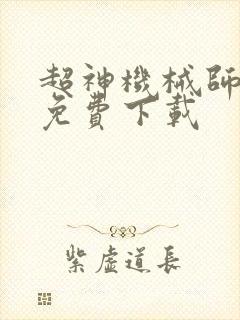 超神機械師
免費下載
紫虛道長